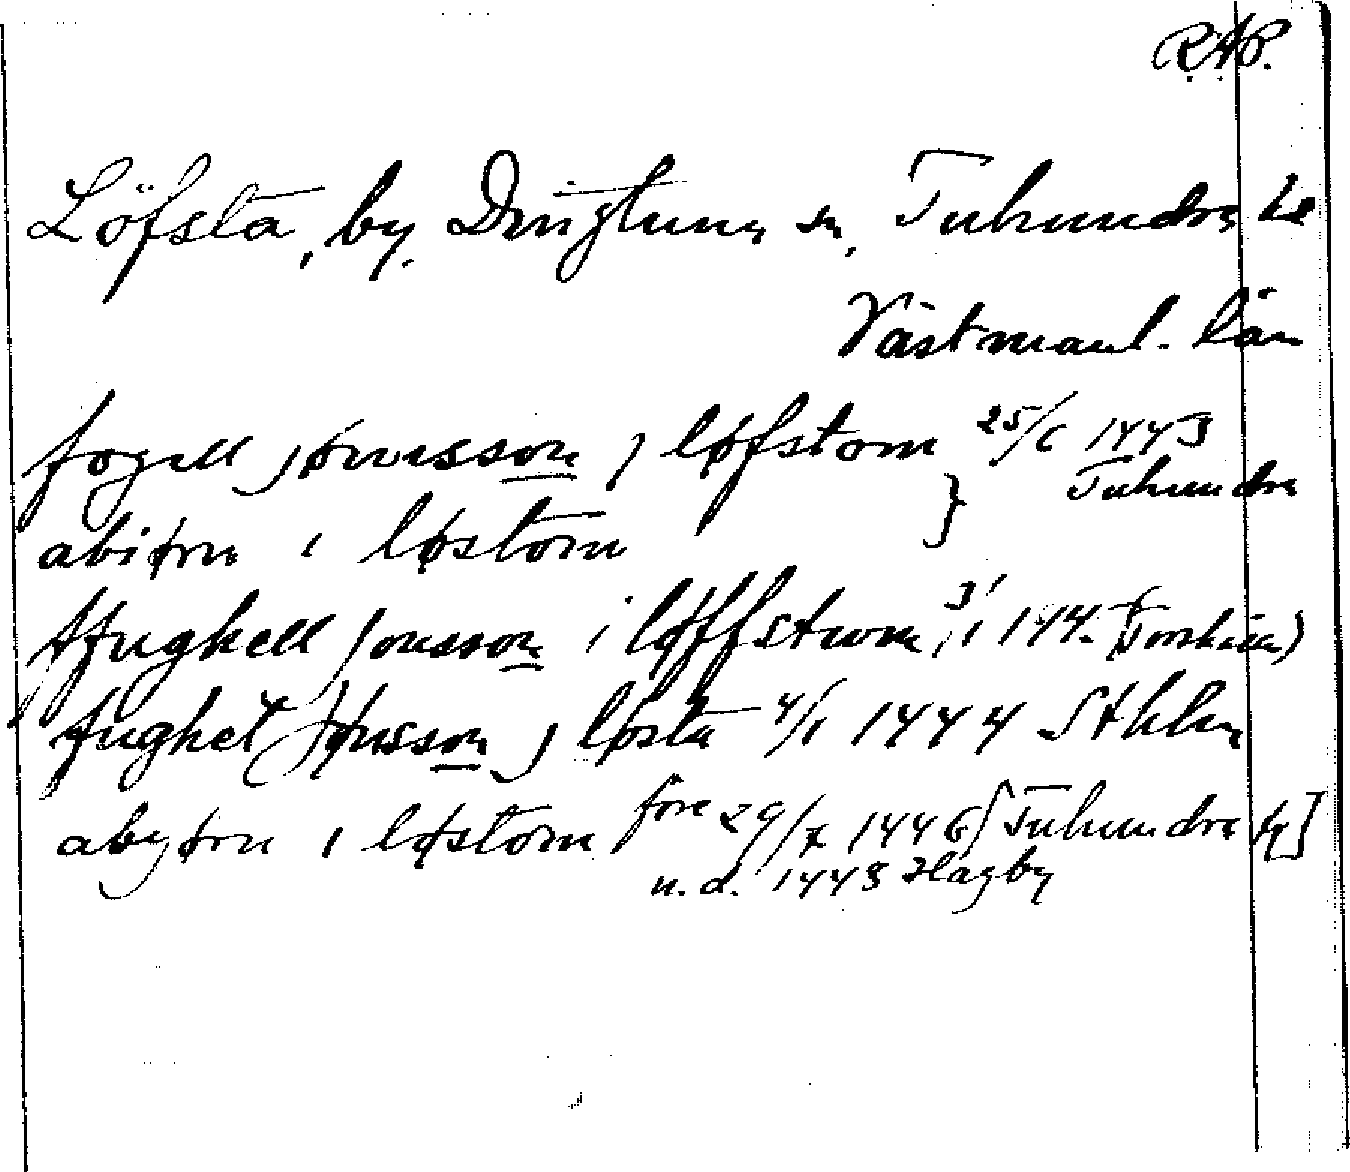 RAP.
Löfsta, by, Dingtuna sn, Tuhundra hd
Västmanl. län
fogell jønisson j løfstom } 25/6 1443
Tuhundra
abiørn i løstom
ffughell Jonsson i løffstwm, 3/1 144- (Torshälla)
fughel Jønsson j løsta 4/1 1444 Sthlm
abyørn i løstom före 29/7 1446 [Tuhundra hd]
u. d. 1443 Hagby